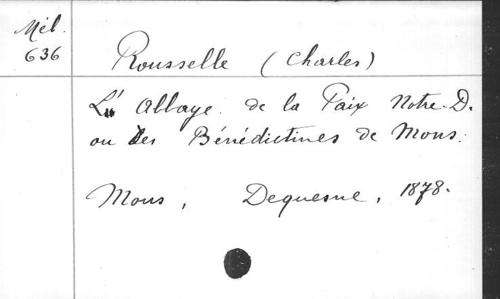 Mél.
636
Rousselle (Charles)
L'Abbaye de la Paix Notre-D.
ou des Bénédictines de Mons.
Mons, Dequesne, 1878.